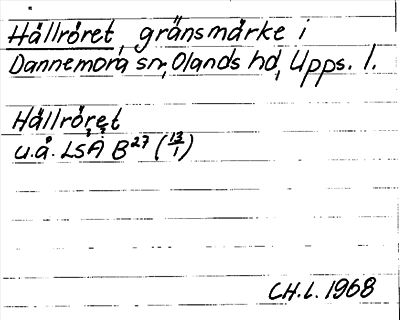 Hållröret, gränsmärke i
Dannemora sn, Olands hd, Upps. l.
Hällröret
u.å. LSÄ B²⁷ (13/1)
CH.L. 1968